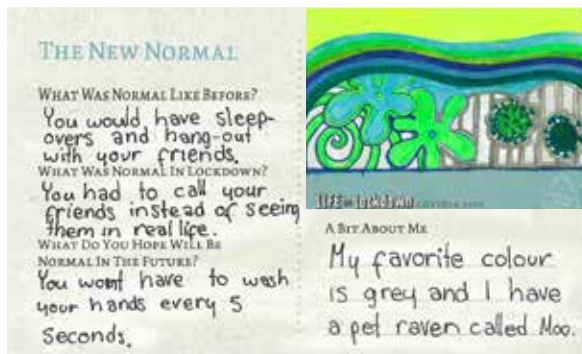 THE NEW NORMAL
WHAT WAS NORMAL LIKE BEFORE?
You would have sleep-
overs and hang-out
with your friends.
WHAT WAS NORMAL IN LOCKDOWN?
You had to call your
friends instead of seeing
them in real life.
WHAT DO YOU HOPE WILL BE
NORMAL IN THE FUTURE?
You wont have to wash
your hands every 5
Seconds.
LIFE in Lockdown
A BIT ABOUT ME
My favorite colour
is grey and I have
a pet raven called Moo.